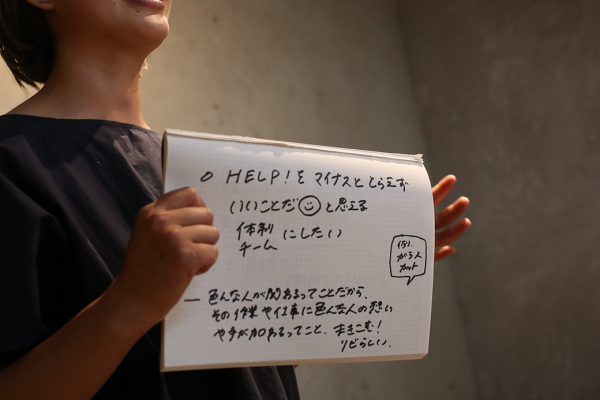 ○ HELP!をマイナスととらえず
いいことだ☺と思える
体制 にしたい
チーム
例).
ガラ入
カット
― 色んな人が関わるってことだから、
その作業や仕事に色んな人の想い
や手が加わるってこと、まきこむ!
リビらしい.